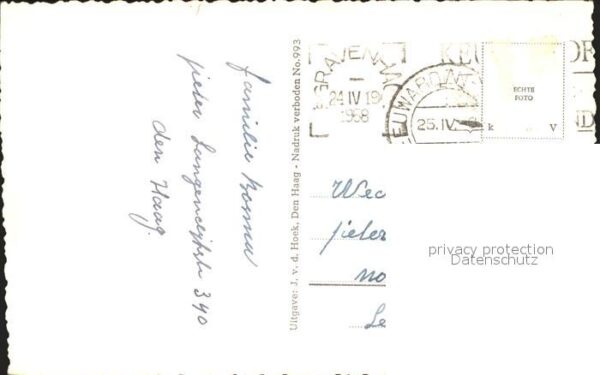 familie Bosma
pieter Langendijkstr 340
den Haag.
Uitgave: J. v. d. Hoek, Den Haag - Nadruk verboden No. 993
'S GRAVENHA
24 IV 19
1958
EEUWARDEN
25.IV
KEU
ND
ECHTE
FOTO
k V
Wec
pieter
no
Le
privacy protection
Datenschutz